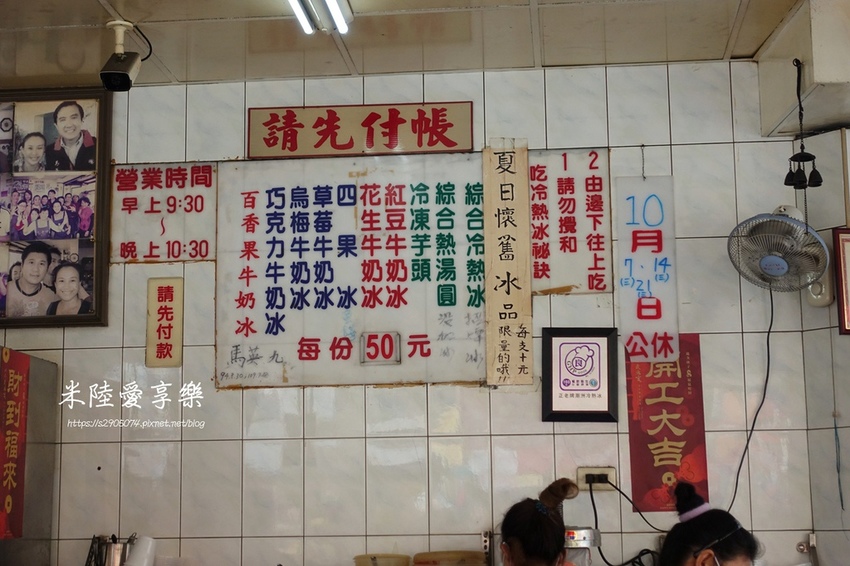 請先付帳
營業時間
早上9:30
～
晚上10:30
請先付款
綜合冷熱冰
綜合熱湯圓
冷凍芋頭
紅豆牛奶冰
花生牛奶冰
四果冰
草莓牛奶冰
烏梅牛奶冰
巧克力牛奶冰
百香果牛奶冰
每份50元
夏日懷舊冰品
每支十元
限量的哦!!
吃冷熱冰祕訣
1請勿攪和
2由邊下往上吃
10
月
7、14
(三)(三)
21
(三)
日
公休
開工大吉
財到福來
正老牌潮洲冷熱冰
米陸愛享樂
https://s2905074.pixnet.net/blog